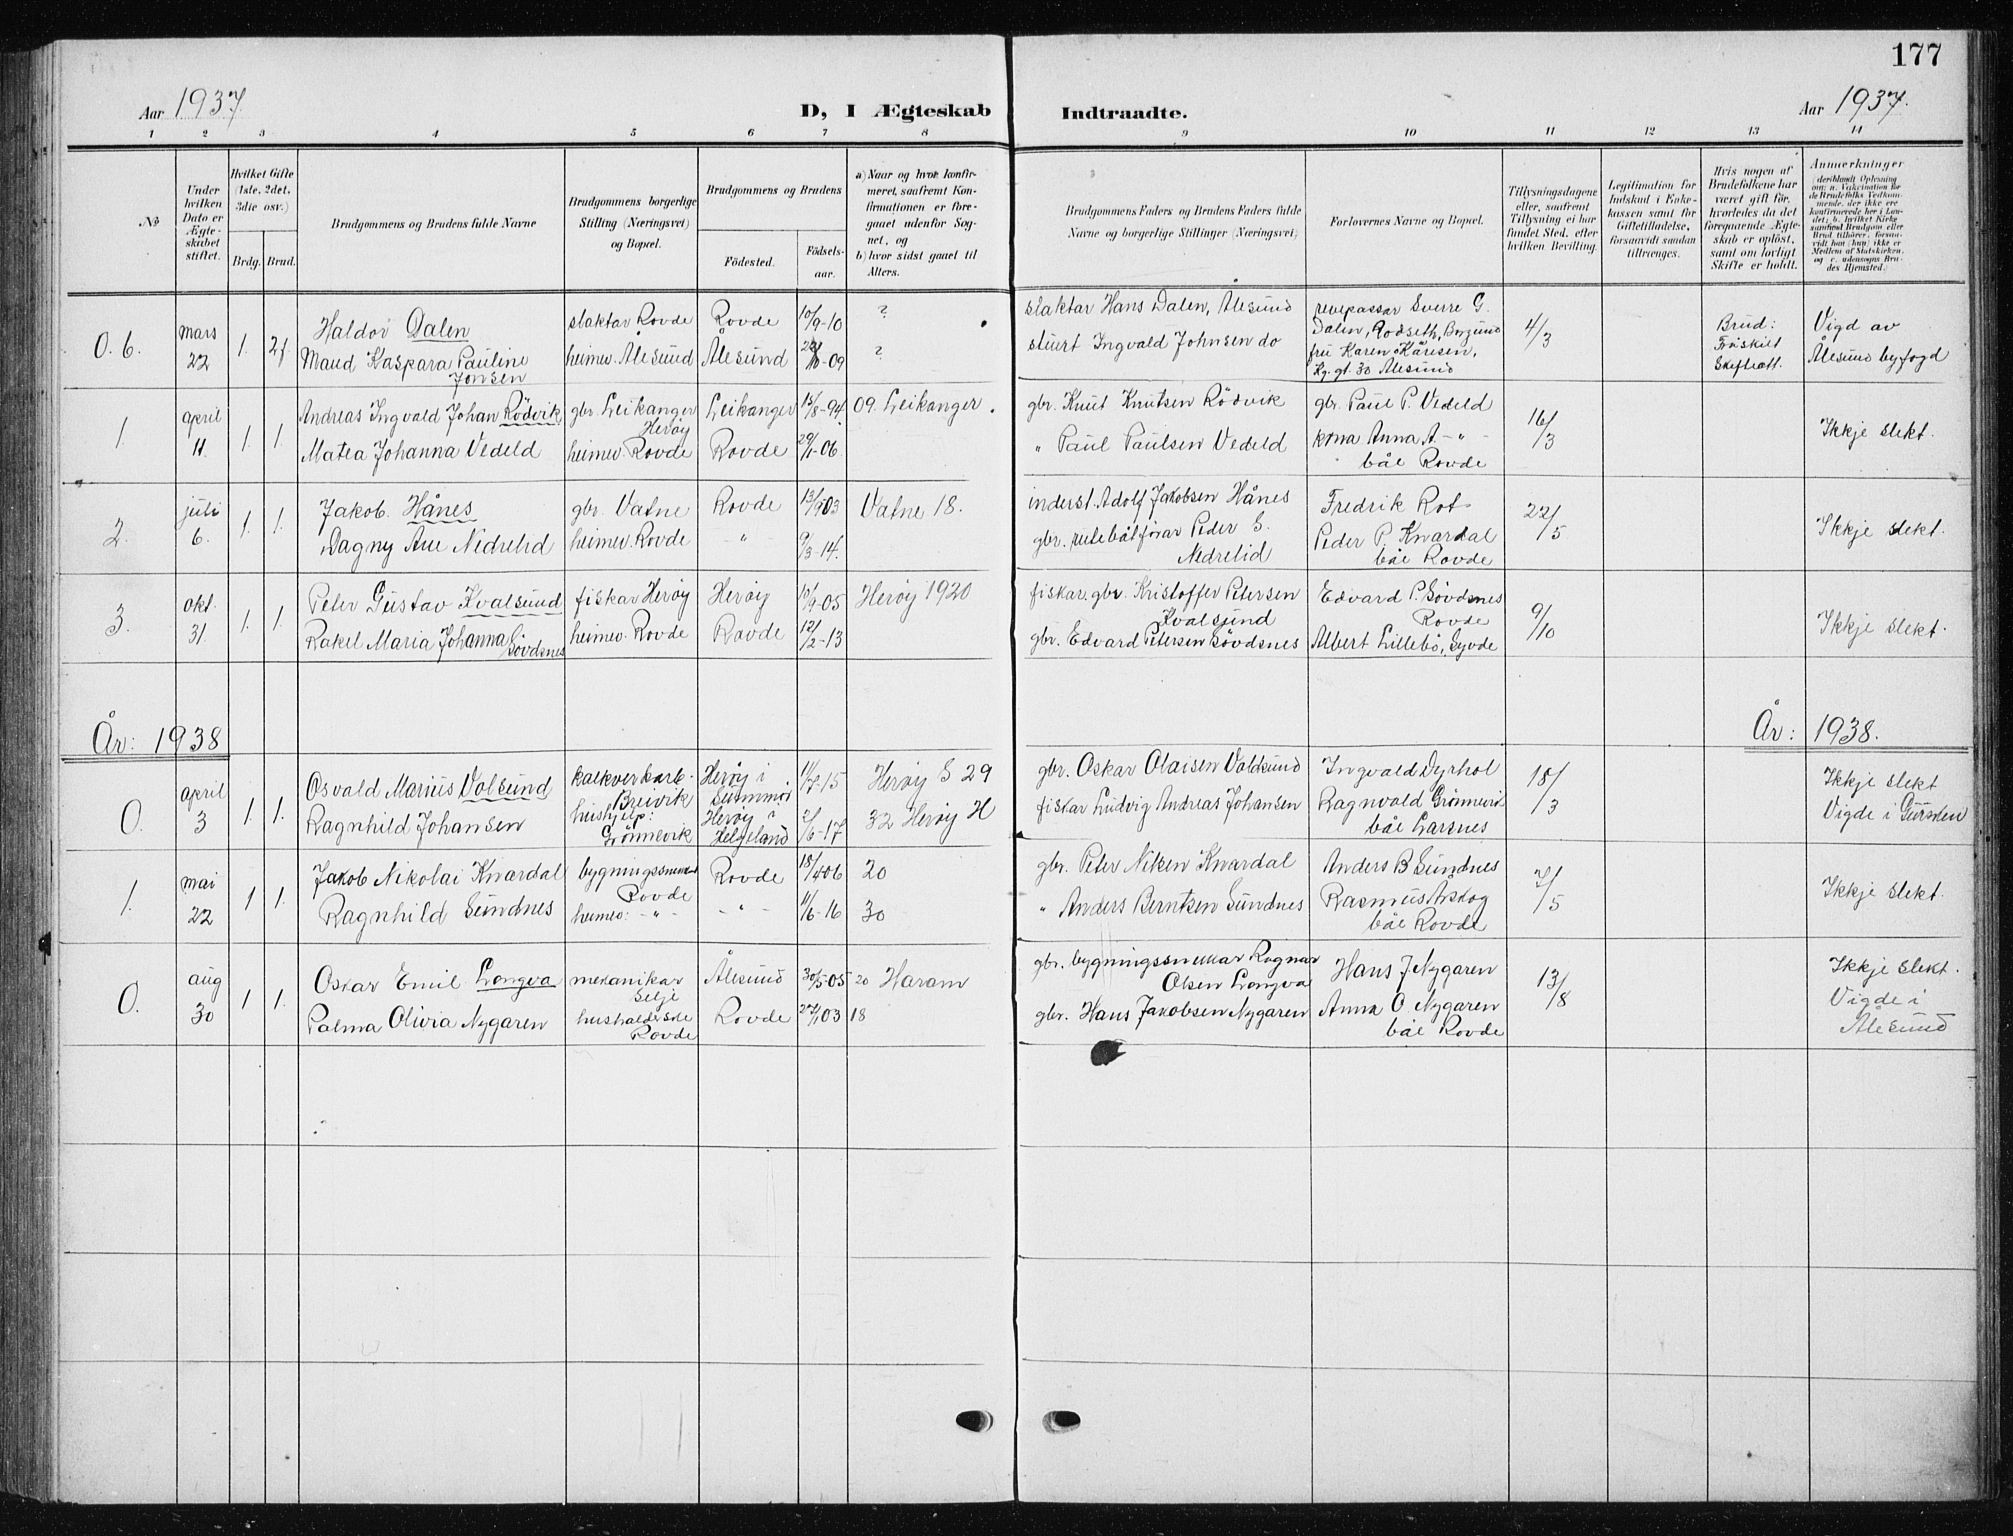 177
Aar 1937.
D, I Ægteskab Indtraadte.
Aar 1937.
1 2 3 4 5 6 7 8 9 10 11 12 13 14
№
Under hvilken Dato er Ægteskabet stiftet.
Hvilket Gifte (1ste, 2det, 3die osv.)
Brdg. Brud.
Brudgommens og Brudens fulde Navne
Brudgommens borgerlige Stilling (Næringsvei) og Bopæl.
Brudgommens og Brudens
Fødested.
Fødselsaar.
a) Naar og hvor konfirmeret, saafremt Konfirmationen er foregaaet udenfor Sognet, og
b) hvor sidst gaaet til Alters.
Brudgommens Faders og Brudens Faders fulde Navne og borgerlige Stillinger (Næringsvei)
Forlovernes Navne og Bopæl.
Tillysningsdagene eller, saafremt Tillysning ei har fundet Sted, efter hvilken Bevilling.
Legitimation for Indskud i Enkekassen samt for Giftetilladelse, forsaavidt saadan tiltrænges.
Hvis nogen af Brudefolkene har været gift før, hvorledes da det foregaaende Ægteskab er opløst, samt om lovligt Skifte er holdt.
Anmerkninger
(deriblandt Oplysning om: a. Vakcination for de Brudefolks Vedkommende, der ikke ere konfirmerede her i Landet; b. hvilket Kirkesamfund Brudgom eller Brud tilhører, forsaavidt han (hun) ikke er Medlem af Statskirken, og c. udensogns Brudes Hjemsted.)
0.6. mars 22 1. 2. Haldor Dalen slaktar Rovde Rovde 10/9-10 ? slaktar Hans Dalen, Ålesund revepassar Sverre G. Dalen, Rodseth, Borgund 4/3 Brud: Fråskilt Skifterett. Vigd av Ålesund byfogd
Maud Kaspara Pauline Jonsen heimev. Ålesund Ålesund -09 ? stuert Ingvald Johnsen do fru Karen Kåresen, Kg. gt. 30 Ålesund
1. april 11. 1. 1. Andreas Ingvald Johan Rödvik gbr. Leikanger Herøy Leikanger 15/8-94. 09. Leikanger. gbr. Knut Knutsen Rödvik gbr. Paul P. Vedeld 16/3 Ikkje slekt.
Matea Johanna Vedeld heimev. Rovde Rovde 29/11-06. " Paul Paulsen Vedeld kona Anna A. - " - båe Rovde
2. juli 6. 1. 1. Jakob Hånes gbr. Vatne Rovde 13/9 03 Vatne 18. inderst. Adolf Jakobsen Hånes Fredrik Rot 22/5 Ikkje slekt.
Dagny Ane Nedrelid heimev. Rovde - " - 9/3-14. gbr. rutebåtförar Peder S. Nedrelid Peder P. Kvardal båe Rovde
3. okt. 31. 1. 1. Peter Gustav Kvalsund fiskar Herøy Herøy 10/9-05 Herøy 1920 fiskar. gbr. Kristoffer Petersen Kvalsund Edvard P. Søvdsnes Rovde 9/10 Ikkje slekt.
Rakel Maria Johanna Søvdsnes heimev. Rovde Rovde 12/2-13 gbr. Edvard Petersen Søvdsnes Albert Lillebö, Syvde
År: 1938 År: 1938.
0. april 3 1. 1. Osvald Marius Volsund kalkverkarb. Breivik Herøy i Sunnmör 11/7-15 Herøy S 29 gbr. Oskar Olaisen Voldsund Ingvald Dyrhol 18/3 Ikkje slekt Vigde i Gursken
Ragnhild Johansen hushjelp: Grönnevik Herøy i Helgeland 2/6-17 32 Herøy H fiskar Ludvig Andreas Johansen Ragnvald Grønnevik båe Larsnes
1. mai 22 1 1. Jakob Nikolai Kvardal bygningssnekkar Rovde Rovde 18/4 06 20 gbr. Peter Nilsen Kvardal Anders B Sundnes 7/5 Ikkje slekt.
Ragnhild Sundnes heimev: - " - - " - 11/6-16 30 " Anders Berntsen Sundnes Rasmus Årskog båe Rovde
0. aug 30 1 1. Oskar Emil Longva mekanikar Selje Ålesund 30/5-05 20 Haram gbr. bygningssnekkar Ragnar Olsen Longva Hans J Nygaren 13/8 Ikkje slekt. Vigde i Ålesund
Palma Olivia Nygaren hushalderske Rovde Rovde 27/11 03 18 gbr. Hans Jakobsen Nygaren Anna O Nygaren båe Rovde